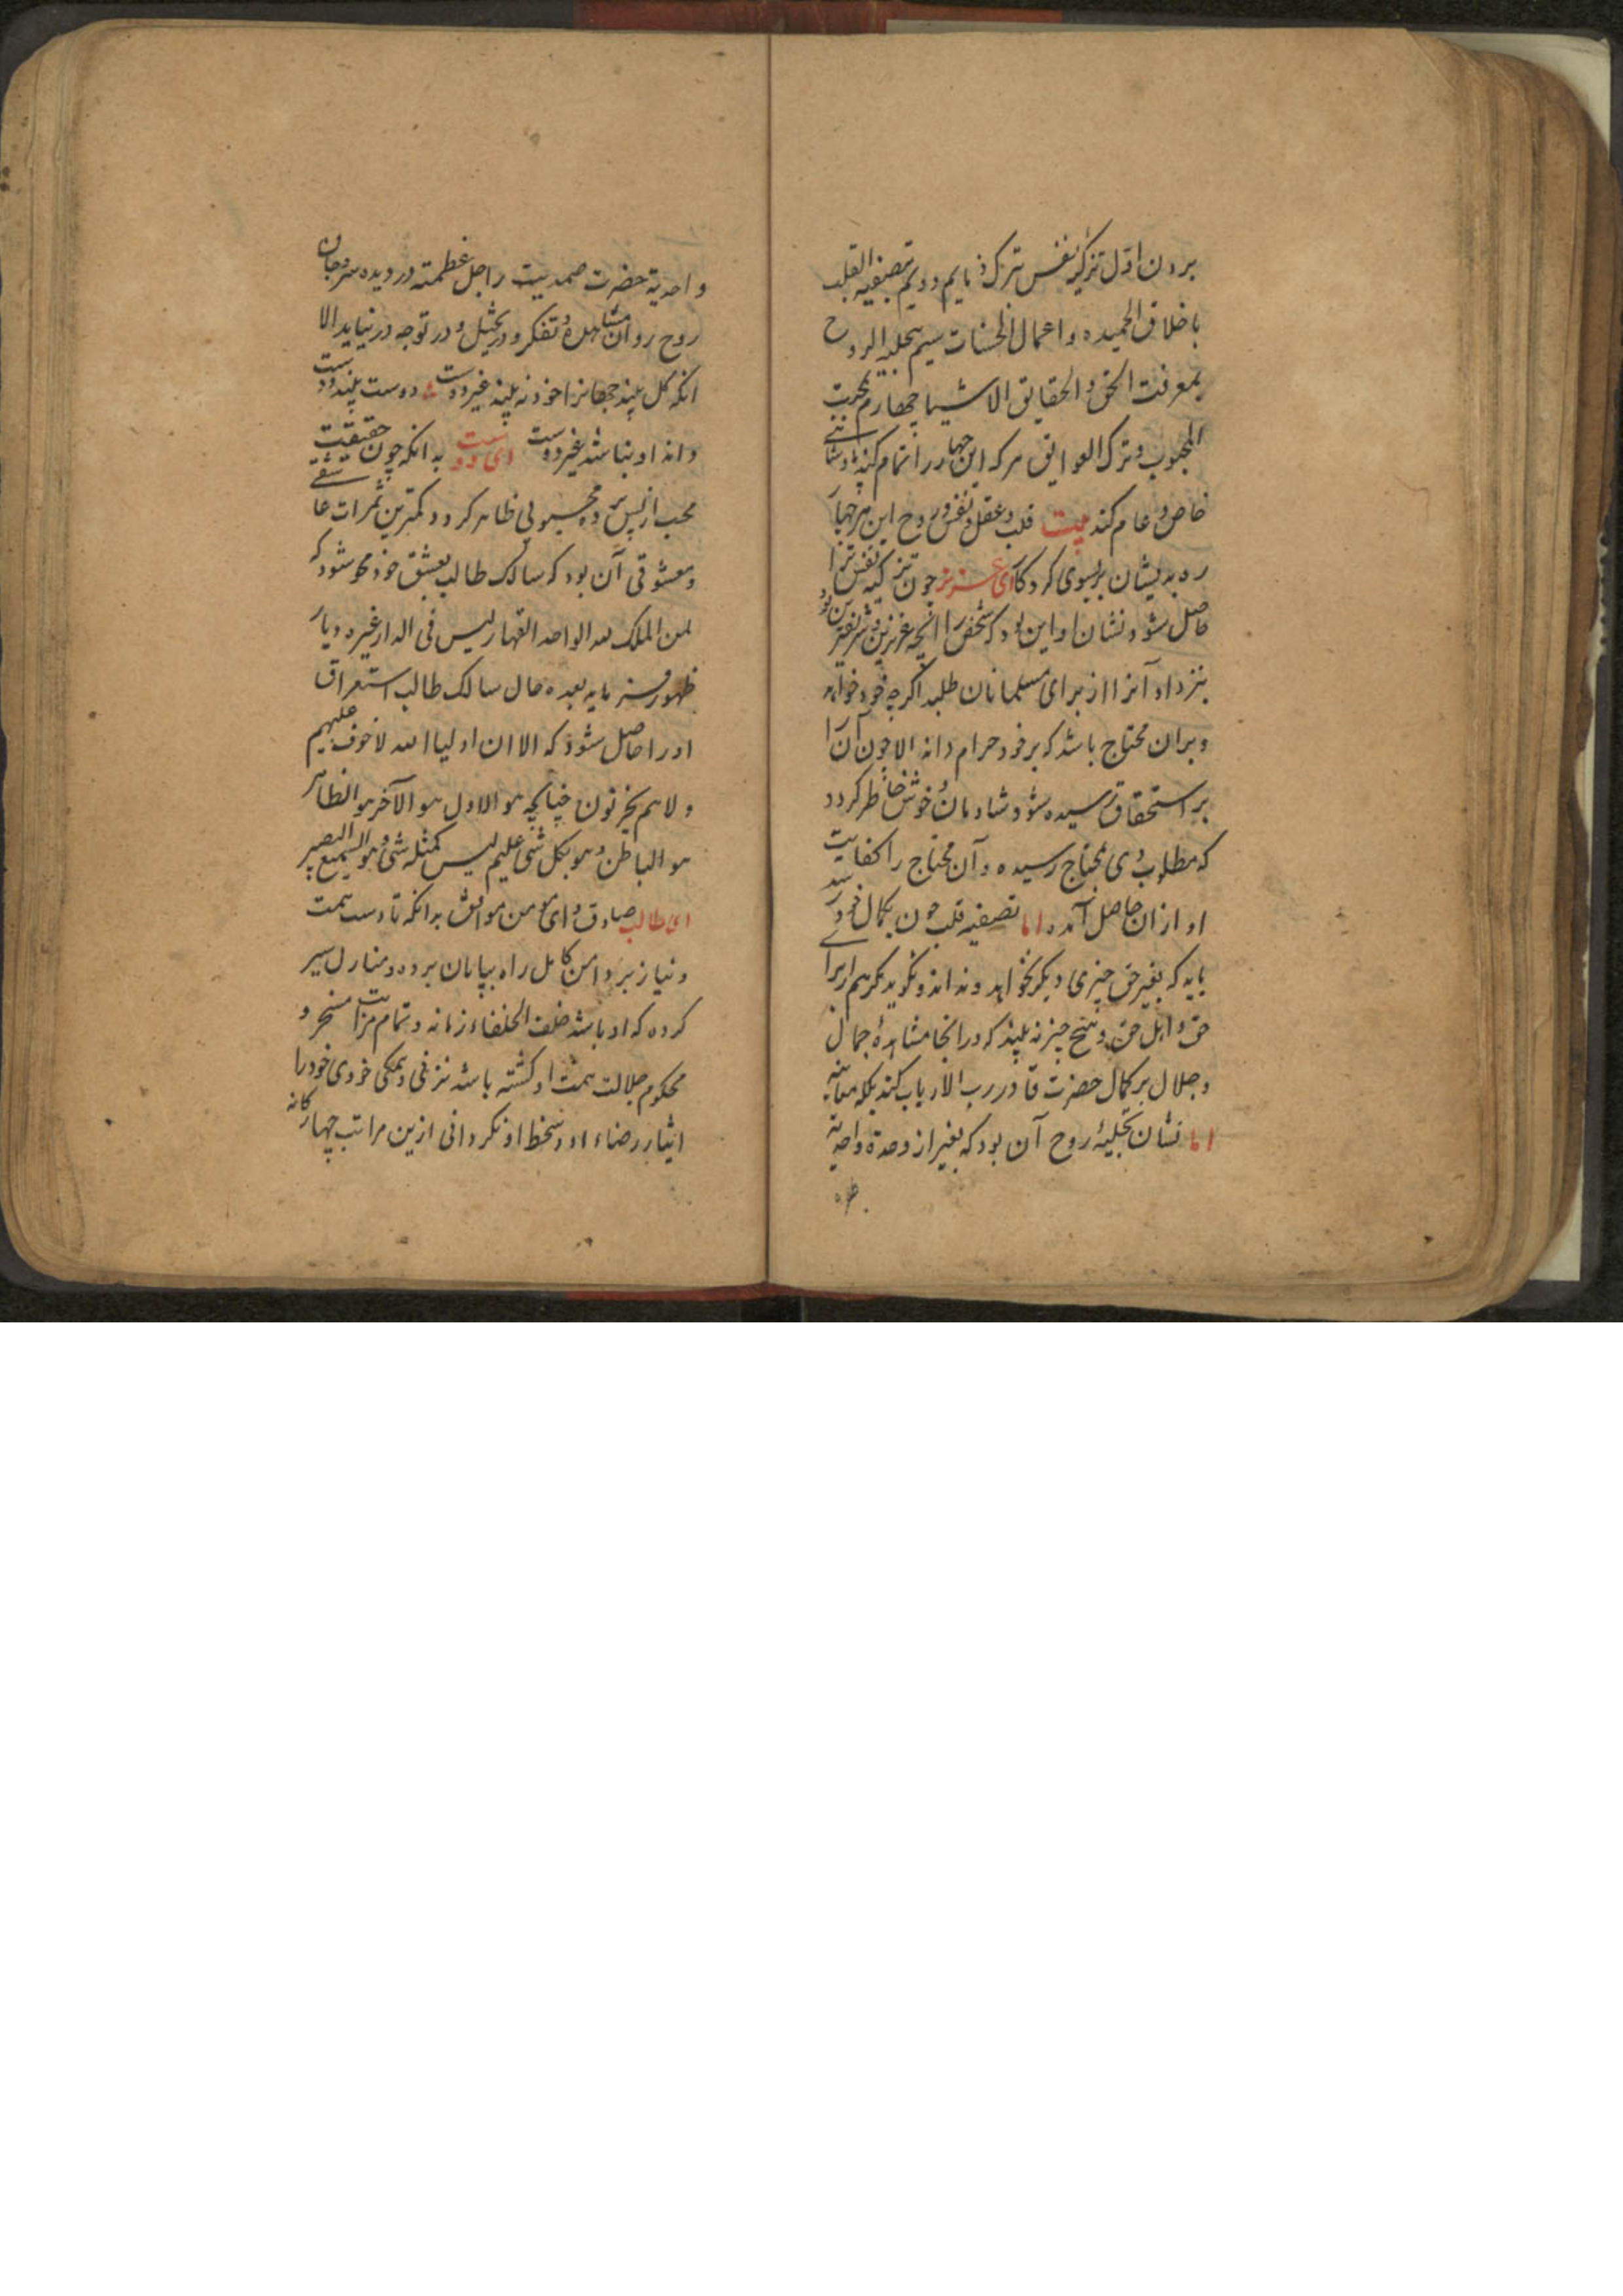 بردن اول تزکیه نفس بترک ذمایم دویم تصفیه القلب
باخلاق الحمیده و اعمال الحسنات سیم تحلیه الروح
بمعرفت الحق و الحقایق الاشیا چهارم محبت
المحبوب و ترک العوایق هرکه این چهار را تمام کند
خاص و عام کند بیت قلب و عقل و نفس و روح این هر چهار
ره بدیشان بسوی کردکار ای عزیز چون تزکیه نفس ترا
حاصل شود نشان او این بود که شخص را انچه عزیزترین و شریفترین بود
بنزد او آنرا از برای مسلمانان طلبد اگرچه خود خواهد
و بران محتاج باشد که بر خود حرام داند الا چون آن را
بر استحقاق رسیده شود شادمان و خوش خاطر کردد
که مطلوب وی بمحتاج رسیده و آن محتاج را کفایت
او ازان حاصل آمده اما تصفیه قلب چون بکمال خود رسد
باید که بغیر حق چیزی دیگر نخواهد و نداند و نکوید مکر هم از برای
حق و اهل حق و هیچ چیز نه بیند که در انجا مشاهدهٔ جمال
و جلال بر کمال حضرت قادر رب الارباب کند بلکه معاینه
اما نشان تحلیهٔ روح آن بود که بغیر از وحدة واحدیة
و احدیة حضرت صمدیت را جل عظمته در دیده سر و جان
روح روان مشاهده و تفکر و در تخیل و در توجه در نیاید الا
انکه کل بیند جهانرا خود نه بیند غیر دوست دوست بیند دوست
داند او نباشد غیر دوست ای دوست بدانکه چون حقیقت
محب از پس پرده محبوبی ظاهر کردد کمترین ثمرات عاشقی
و معشوقی آن بود که سالک طالب بعشق خود محو شود که
لمن الملک لله الواحد القهار لیس فی الدار غیره دیار
ظهور فرماید بعده حال سالک طالب استغراق
او را حاصل شود که الا ان اولیا الله لا خوف علیهم
و لا هم یحزنون چنانچه هو الاول هو الآخر هو الظاهر
هو الباطن و هو بکل شی علیم لیس کمثله شی و هو السمیع البصیر
ای طالب صادق و ای مومن موافق بدانکه تا دست همت
و نیاز بر دامن کامل راه بپایان برده و منازل سیر
کرده که او باشد خلف الخلفاء زمانه و تمام مراتب مسخر و
محکوم جلالت همت او کشته باشد نزنی و بمکی خودی خود را
ایثار رضاء او و سخط او نکردانی ازین مراتب چهارکانه